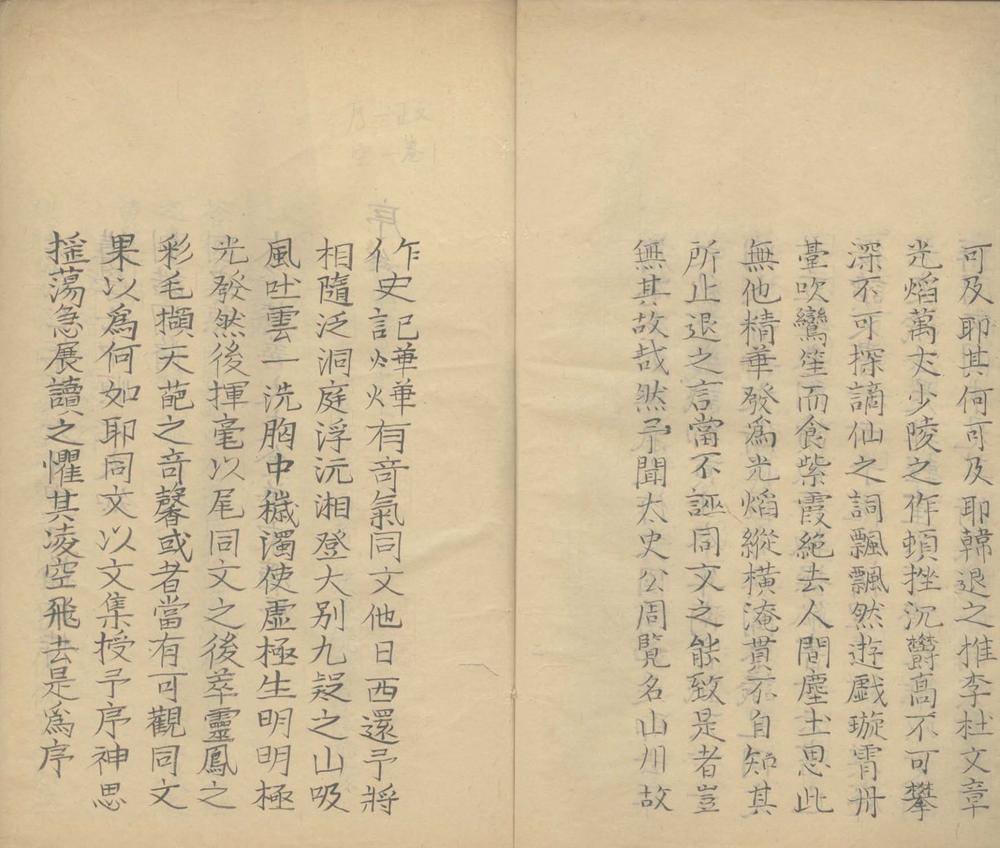 可及耶其何可及耶韓退之推李杜文章
光焰萬丈少陵之作頓挫沉欝高不可攀
深不可探謫仙之詞飄飄然遊戲璇霄丹
臺吹鸞笙而食紫霞絶去人間塵土思此
無他精華發爲光焰縱橫淹貫不自知其
所止退之言當不誣同文之能致是者豈
無其故哉然予聞太史公周覽名山川故
作史記燁燁有竒氣同文他日西還予將
相隨泛洞庭浮沅湘登大别九疑之山吸
風吐雲一洗胸中穢濁使虛極生明明極
光發然後揮毫以尾同文之後萃靈鳳之
彩毛擷天葩之竒馨或者當有可觀同文
果以爲何如耶同文以文集授予序神思
摇蕩急展讀之懼其凌空飛去是爲序